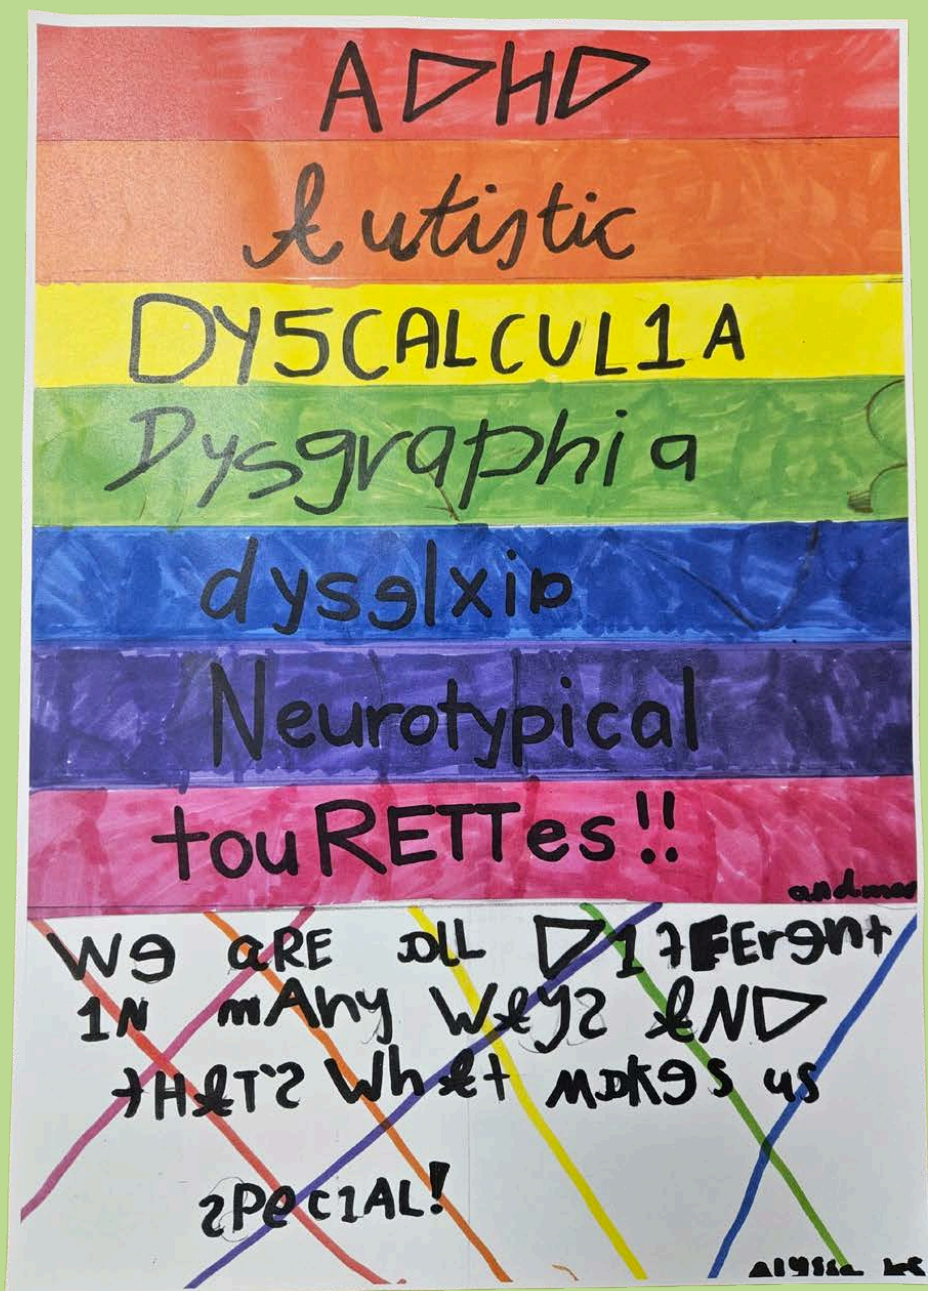 ADHD
Autistic
DY5CALCUL1A
Dysgraphia
dyselxia
Neurotypical
touRETTes!!
We aRE aLL D1fFErent
1N mAny WaYs aND
tHaT's What maKes us
sPec1AL!
alyssa